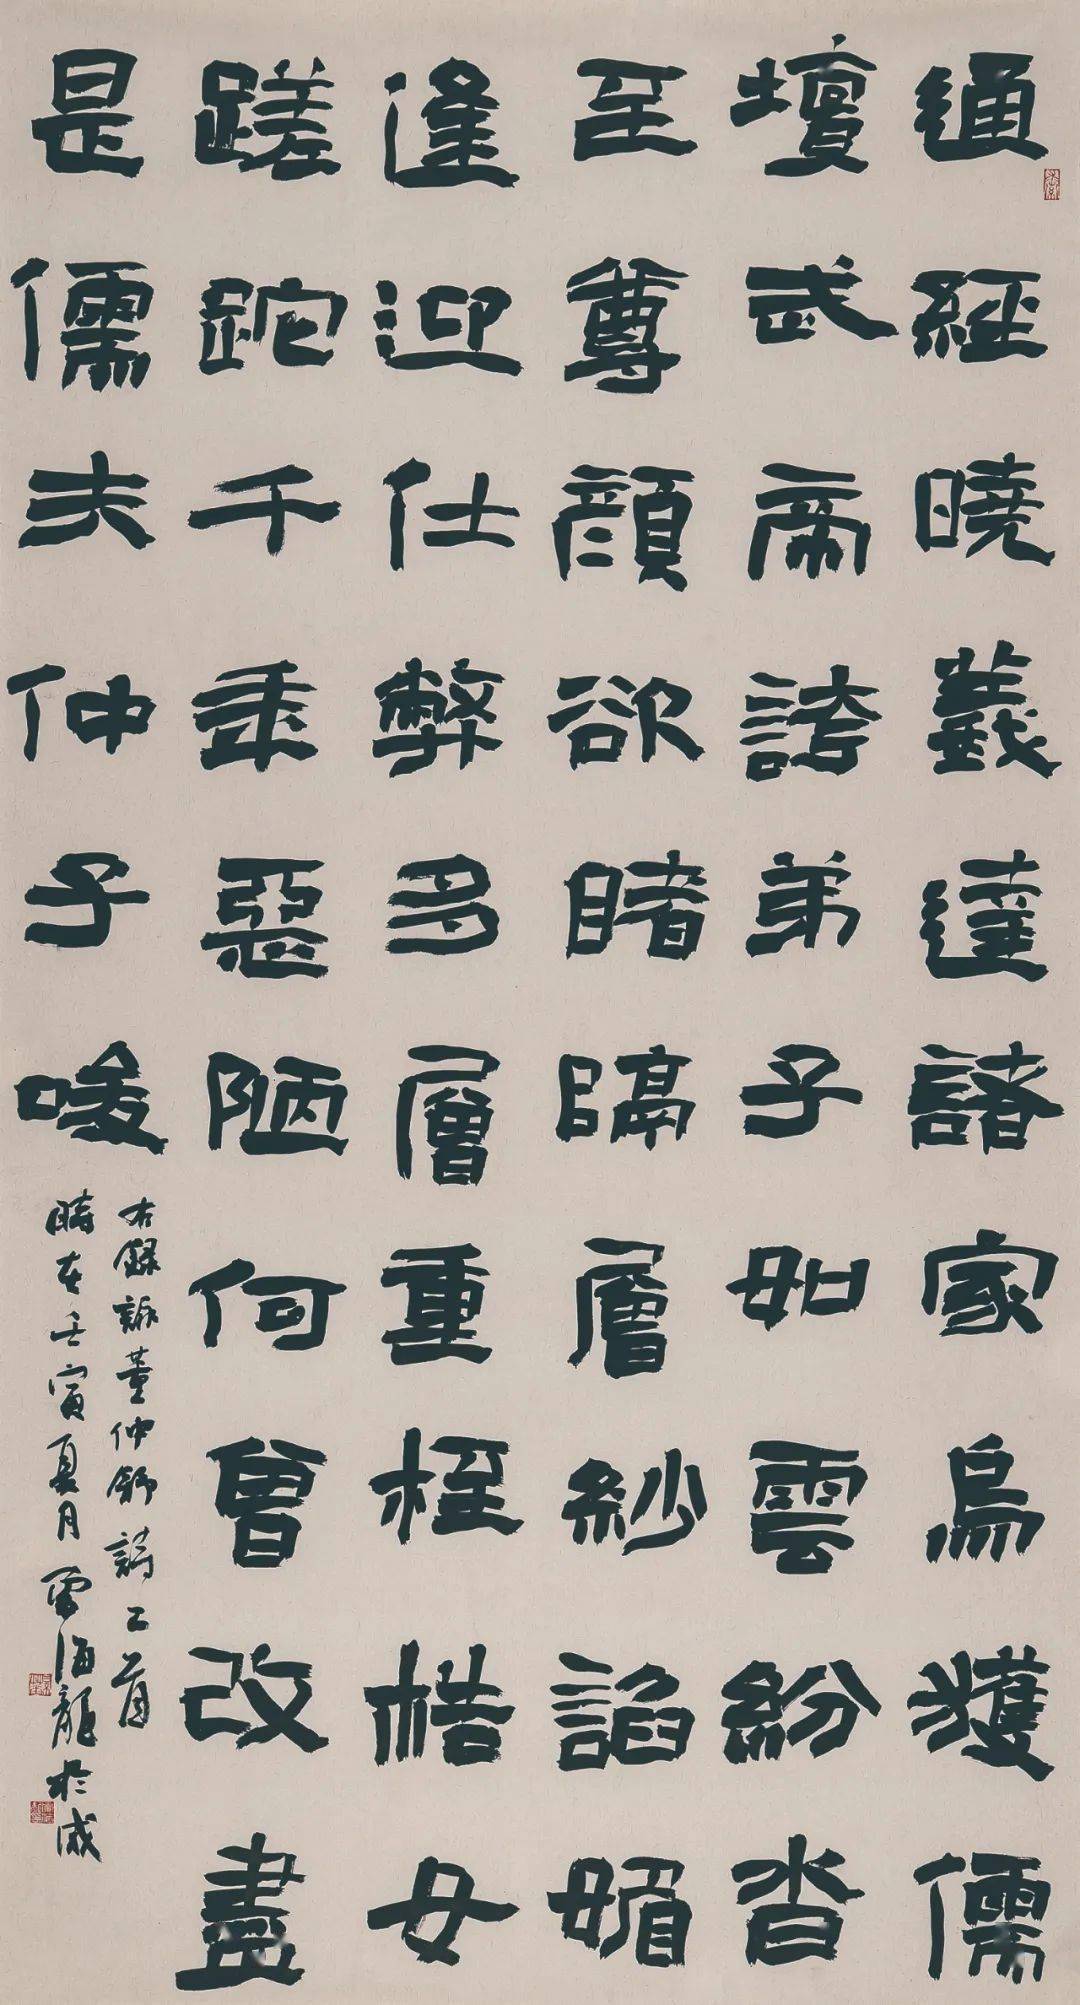 通經曉義達諸家烏獲儒
壇武帝誇弟子如雲紛沓
至尊顏欲睹隔層紗諂媚
逢迎仕弊多層重桎梏女
蹉跎千年惡陋何曾改盡
是儒夫仲子唆
右錄詠董仲舒詩二首
時在壬寅夏月海龍於成